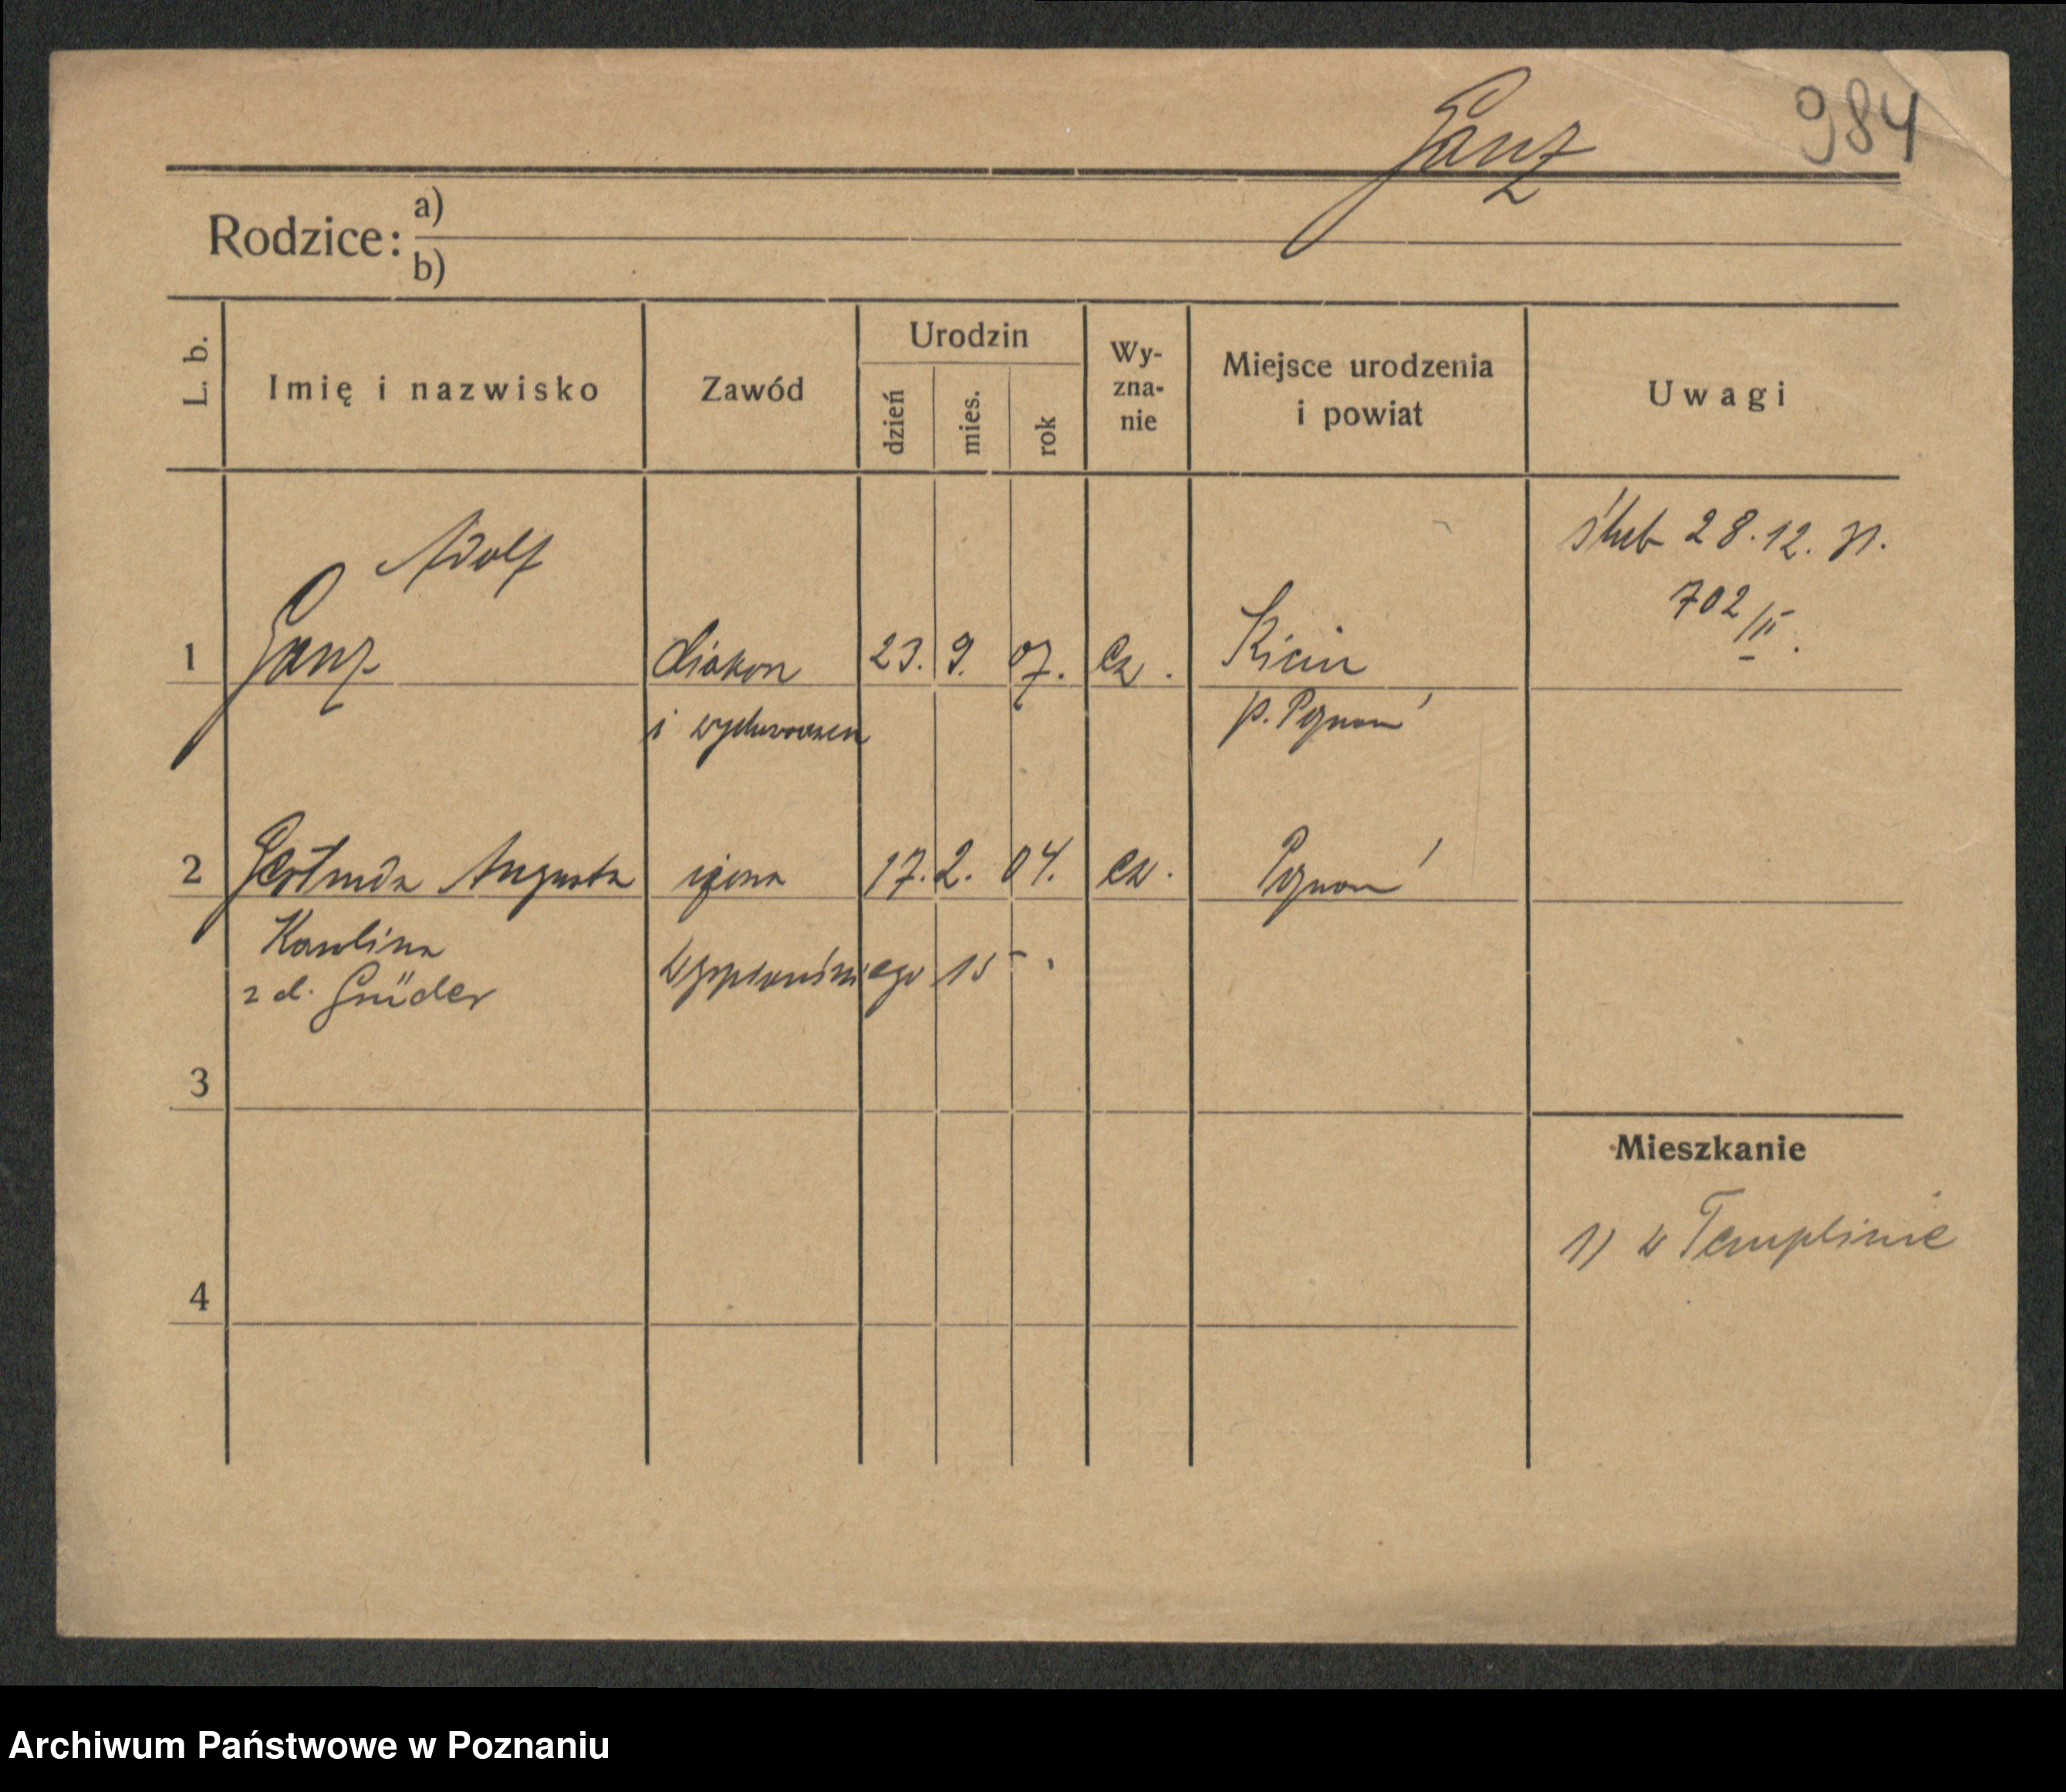 Ganz 984
Rodzice: a)
b)
L. b. Imię i nazwisko Zawód Urodzin dzień mies. rok Wy-zna-nie Miejsce urodzenia i powiat Uwagi
ślub 28.12.31.
702/II.
Adolf
1 Ganz diakon 23. 9. 07. ew. Kicin
i wychowawca p. Poznań
2 Gertruda Augusta żona 17. 2. 04. ew. Poznań
Karolina
z d. Grüder Wyspiańskiego 15
3
Mieszkanie
1) w Templinie
4
Archiwum Państwowe w Poznaniu